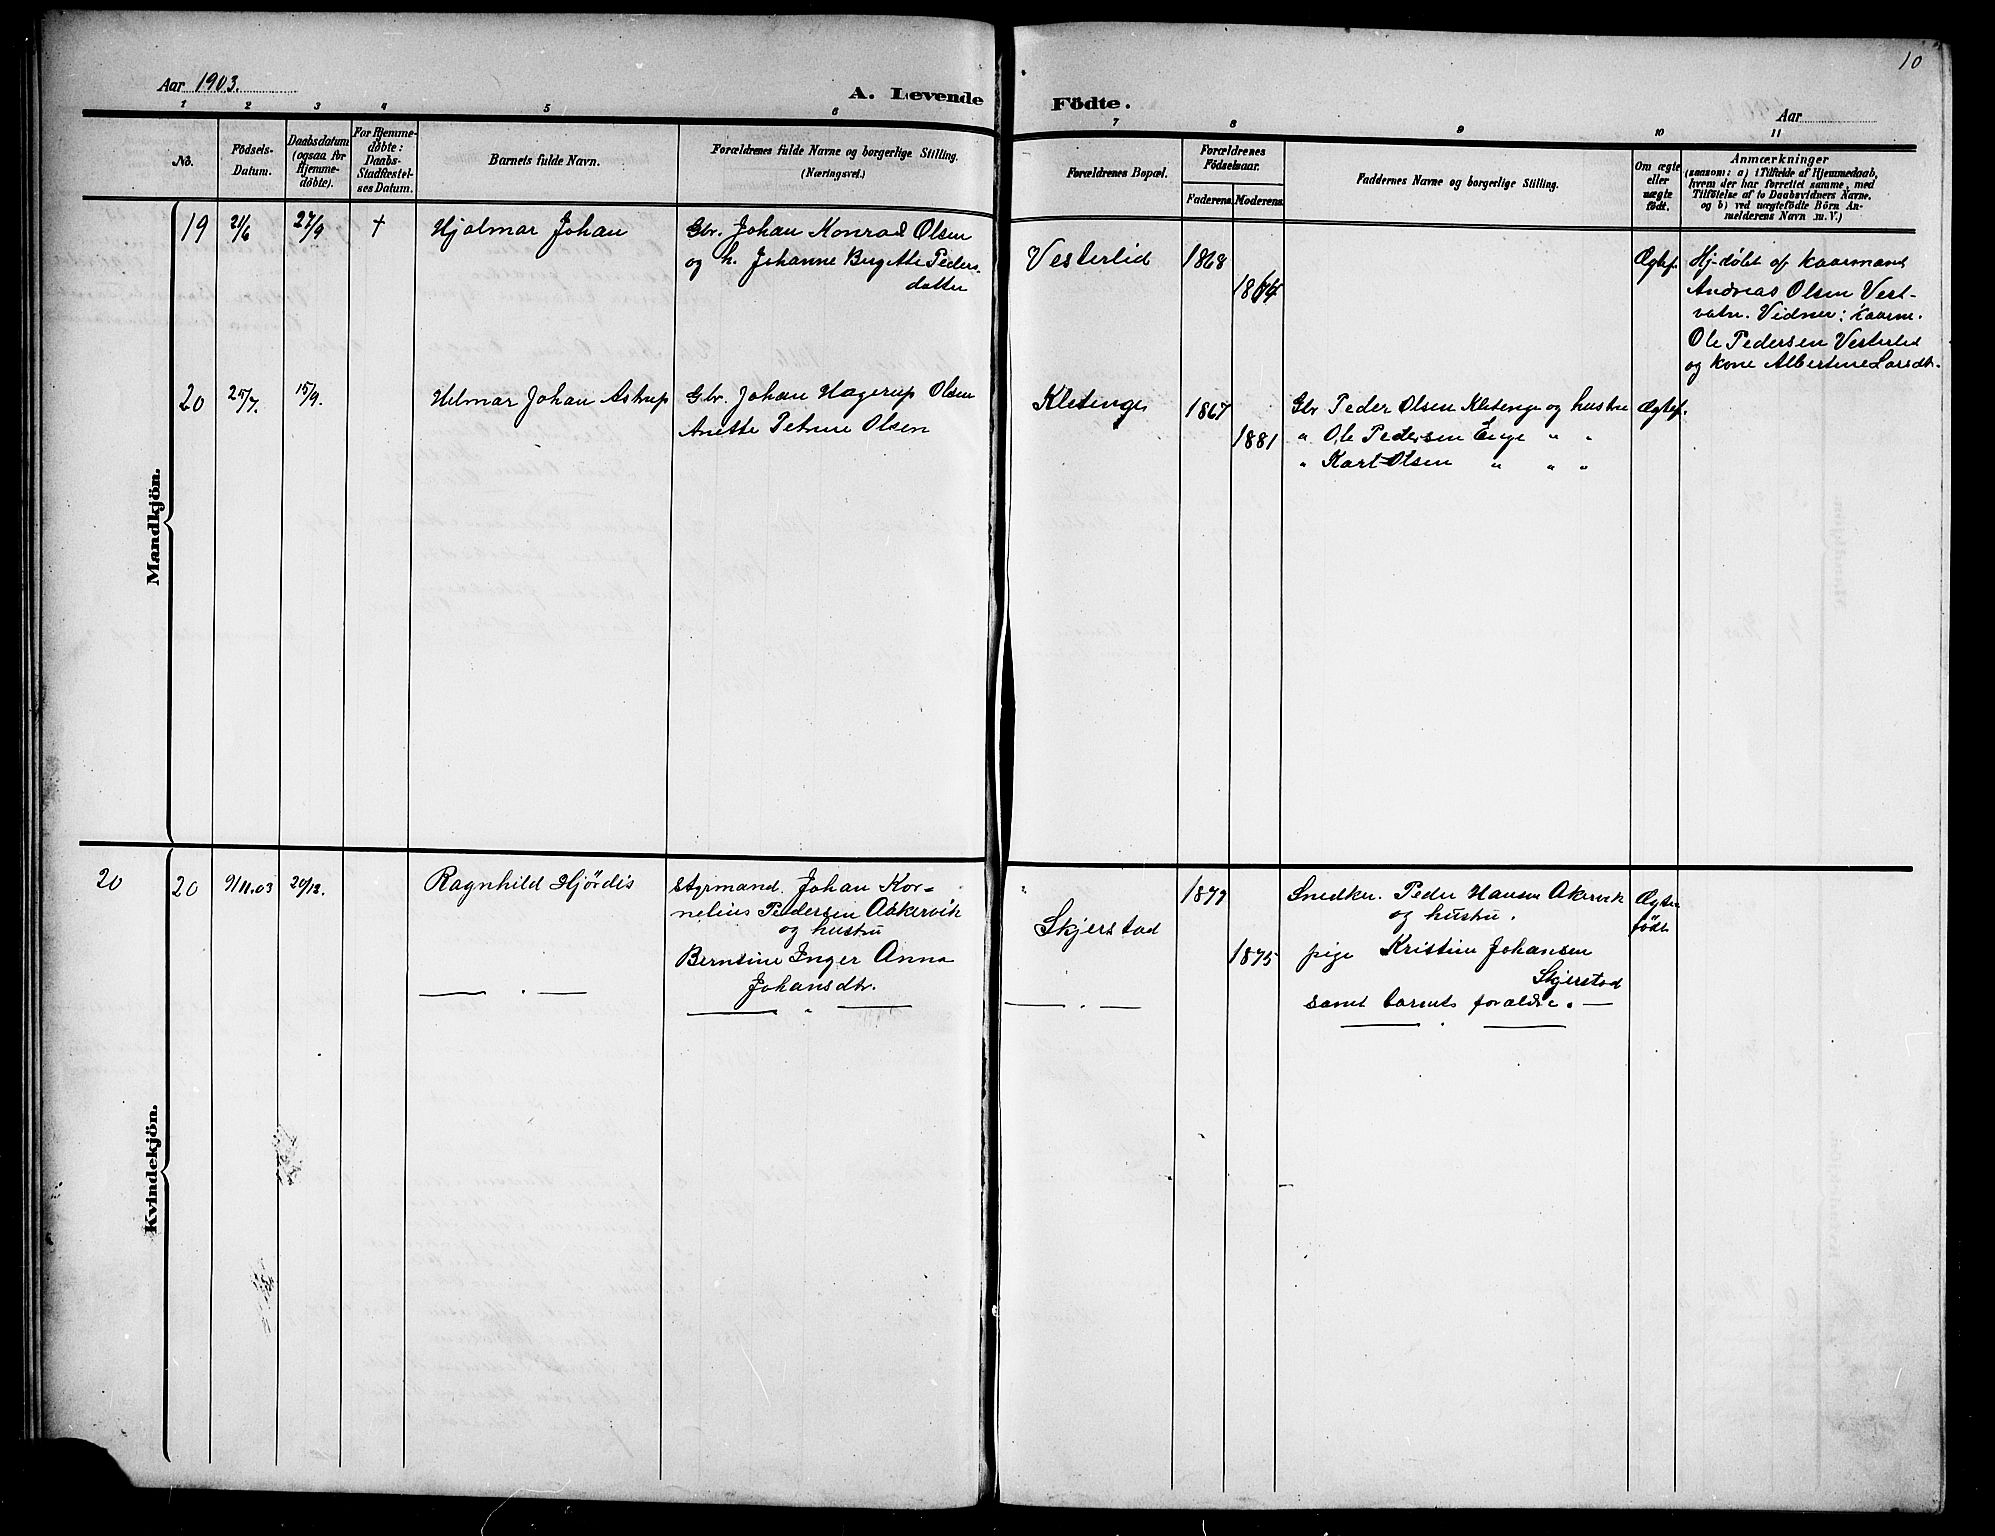 10
Aar 1903.
A. Levende Födte.
Aar
1 2 3 4 5 6 7 8 9 10 11
No.
Födsels-
Datum.
Daabsdatum
(ogsaa for
Hjemme-
döbte).
For Hjemme-
döbte:
Daabs-
Stadfæstel-
ses Datum.
Barnets fulde Navn.
Forældrenes fulde Navne og borgerlige Stilling.
(Næringsvei.)
Forældrenes Bopæl.
Forældrenes
Födselsaar.
Faderens. Moderens.
Faddernes Navne og borgerlige Stilling.
Om ægte
eller
uægte
födt.
Anmærkninger
(saasom: a) i Tilfælde af Hjemmedaab,
hvem der har forrettet samme, med
Tilföielse af to Daabsvidners Navne,
og b) ved uægtefödte Börn An-
melderens Navn m. V.)
Mandkjön.
19 21/6 27/9 + Hjalmar Johan
Gbr. Johan Konrad Olsen
og h. Johanne Bergette Peders-
datter
Vesterlid 1868
Ægtef.
Hj-døbt af kaarmand
Andreas Olsen Vest-
vatn. Vidner: kaarm.
Ole Pedersen Vesterlid
og kone Albertine Larsdt.
20 25/7. 15/9. Hilmar Johan Astrup
Gbr. Johan Hagerup Olsen
Anette Petrine Olsen
Kletenge 1867
1881
Gbr Peder Olsen Kletenge og hustru
" Ole Pedersen Enge " "
" Karl Olsen " " "
Ægtef.
Kvindekjön.
20 20 9/11.03 20/12. Ragnhild Hjørdis
Styrmand. Johan Kor-
nelius Pedersen Aakervik
og hustru
Berntine Inger Anna
Johansdtr.
Skjerstad 1877
1875
Snedker. Peder Hansen Akervik
og hustru.
pige Kristine Johansen
Skjerstad
samt barnets forældre. —
Ægte
født